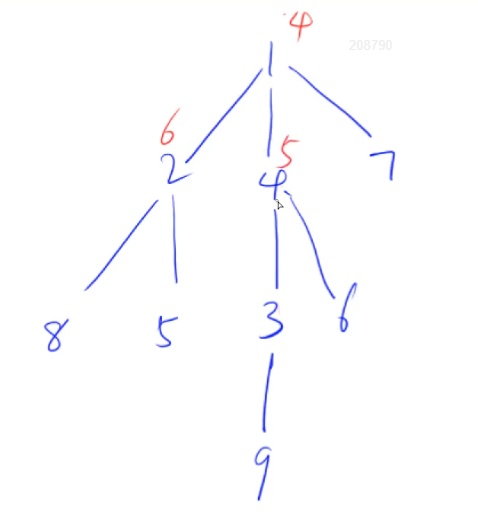 4
1
208790
6
2
5
4
7
8
5
3
6
9